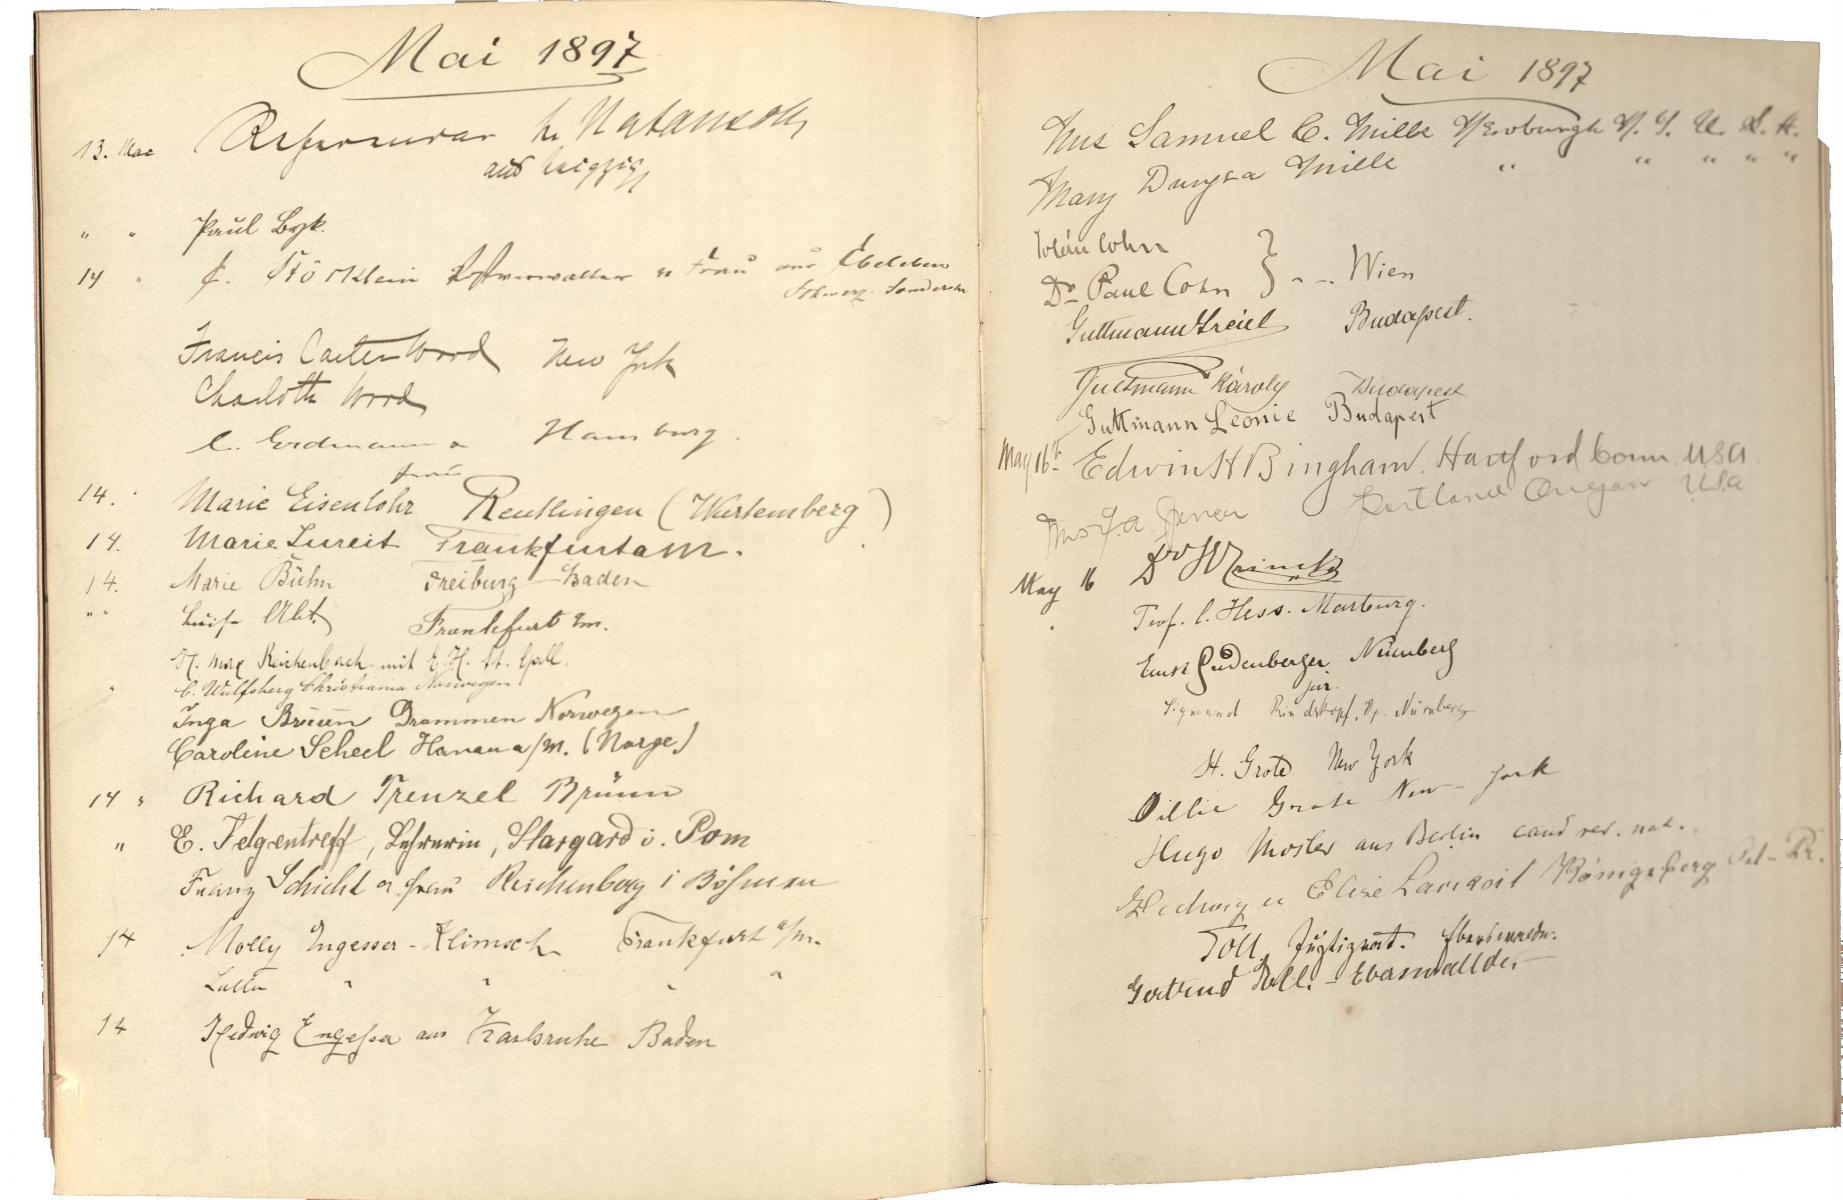 Mai 1897
13. Mai Referendar Natanson
aus Leipzig
" " Paul Byk.
14 " Postverwalter u Frau aus Ebeleben
Schwarz. Sondersh
Francis Carter Wood New York
Charlotte Wood
C. Erdmann u Hamburg.
Frau
14. Marie Eisenlohr Reutlingen (Würtemberg)
14. Marie Lureit Frankfurt a M.
14. Marie Bühn Freiburg Baden
" " Luise Abt. Frankfurt a/m.
H. Max Reichenbach mit St. Gall.
C. Wulfsberg Christiania Norwegen
Inga Bruun Drammen Norwegen
Caroline Scheel Hanau a/M. (Norge)
14 " Richard Trenzel Brünn
" E. Felgentreff, Lehrerin, Stargard i. Pom
Franz Schicht u. Frau Reichenberg i Böhmen
14 Molly Ingesser-Klimsch Frankfurt a/m.
" " " "
14 Hedwig Engesser aus Karlsruhe Baden
Mai 1897
Mrs Samuel C. Mills Newburgh N. Y. U. S. A.
Mary Duryea Mills " " " " "
Cohn
Dr Paul Cohn } - - - Wien
Guttmann Budapest.
Guttmann Károly Budapest
Guttmann Leonie Budapest
May 16th Edwin H Bingham. Hartford Conn USA
Portland Oregon USA
May 16 Dr
Prof. C. Hess. Marburg.
Ernst Nürnberg
jur.
Sigmund Rindskopf, Nürnberg
H. Grote New York
Grote New-York
Hugo Moster aus Berlin cand rer. nat.
Hedwig u Elise Königsberg Ost-Pr.
Toll, Eberswalde.
Gertrud Toll. - Eberswallde.